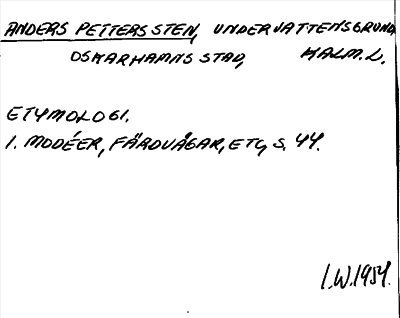 ANDERS PETTERS STEN, UNDERVATTENSGRUND,
OSKARHAMNS STAD, KALM.L.
ETYMOLOGI.
1. MODÉER, FÄRDVÄGAR, ETC, S. 44.
I.W.1954.